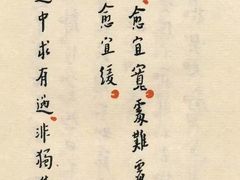 愈宜寬處難處
愈宜緩
過中求有過非獨